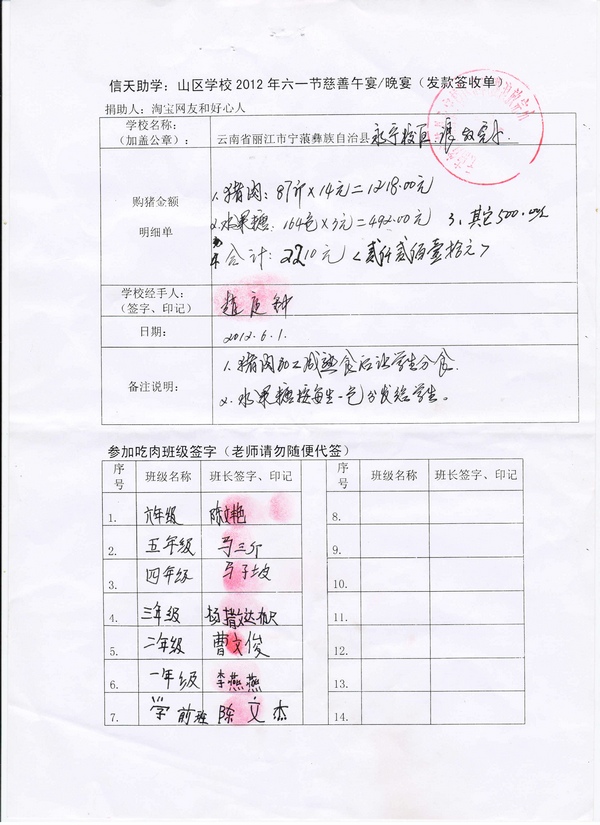 信天助学：山区学校2012年六一节慈善午宴/晚宴（发款签收单）
捐助人：淘宝网友和好心人
学校名称：
（加盖公章）：
云南省丽江市宁蒗彝族自治县永宁校区
购猪金额
明细单
1. 猪肉：87斤×14元=1218.00元
2. 水果糖：164包×3元=492.00元 3、其它500.00元
合计：2210元〈贰仟贰佰壹拾元〉
学校经手人：
（签字、印记）
日期：
2012.6.1.
备注说明：
1. 猪肉加工成熟食后让学生分食.
2. 水果糖按每生一包分发给学生。
参加吃肉班级签字（老师请勿随便代签）
序号 班级名称 班长签字、印记 序号 班级名称 班长签字、印记
1. 六年级 陈文艳 8.
2. 五年级 马三介 9.
3. 四年级 马子坡 10.
4. 三年级 11.
5. 二年级 曹文俊 12.
6. 一年级 李燕燕 13.
7. 学前班 陈文杰 14.